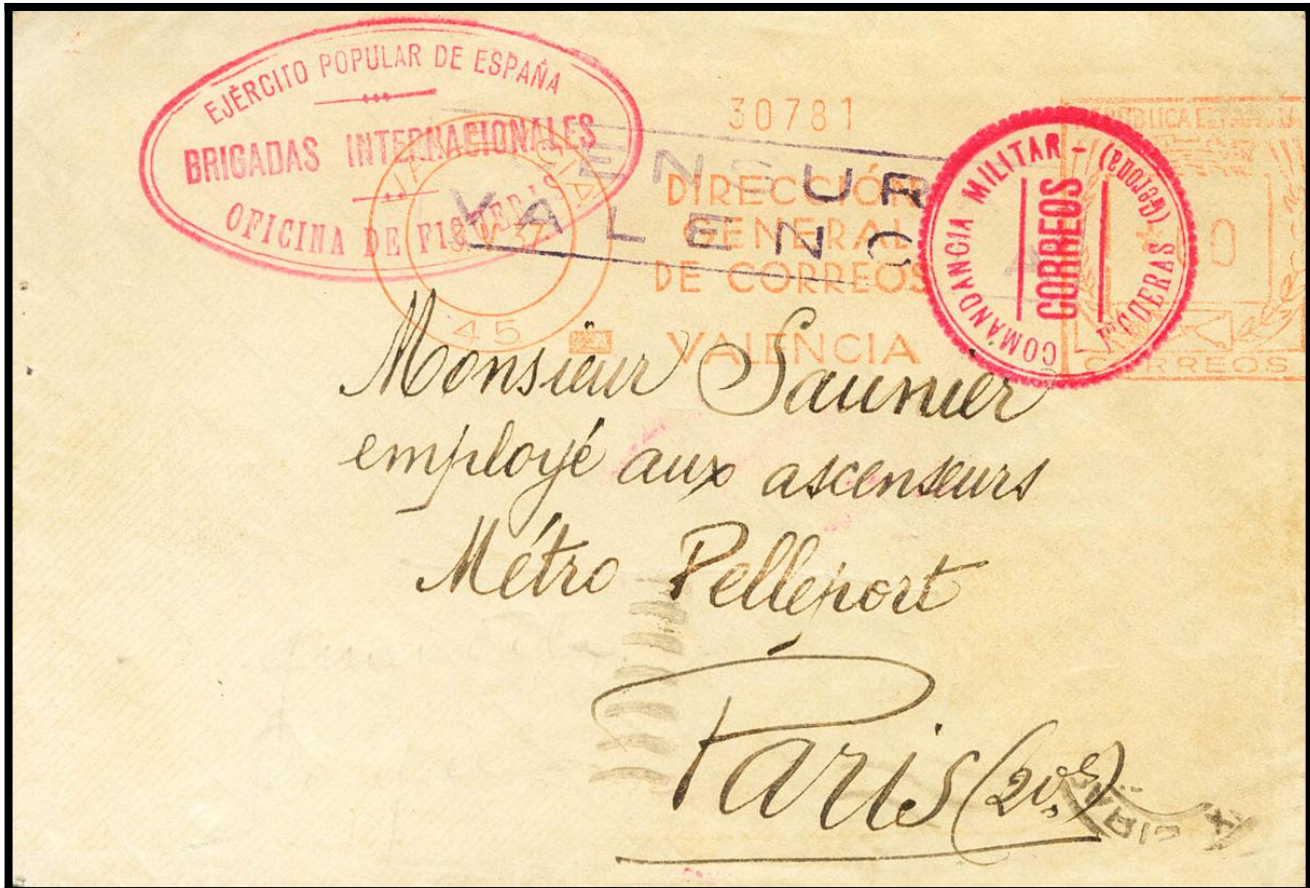 EJÉRCITO POPULAR DE ESPAÑA
BRIGADAS INTERNACIONALES
OFICINA DE
30781
DIRECCIÓN
GENERAL
DE CORREOS
VALENCIA
45
ENSUR
VALENC
COMANDANCIA MILITAR - (Gerona)
CORREOS
REPÚBLICA ESPAÑOLA
0
CORREOS
Monsieur Saunier
employé aux ascenseurs
Métro Pelleport
Paris (20e)